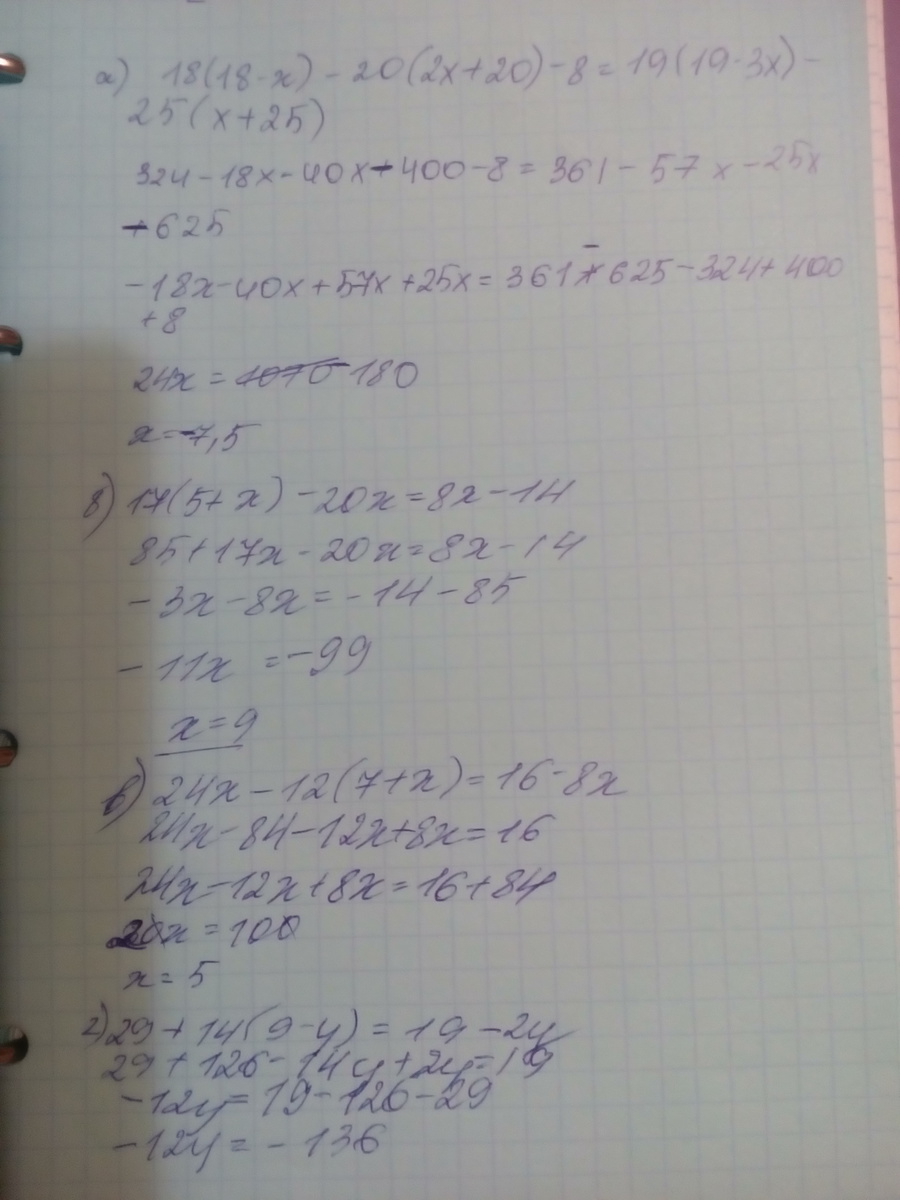 а) 18(18-x) - 20(2x+20) - 8 = 19(19-3x) -
25(x+25)
324 - 18x - 40x - 400 - 8 = 361 - 57x - 25x
- 625
-18x - 40x + 57x + 25x = 361 - 625 - 324 + 400
+8
24x = 1070 180
x = 7,5
б) 17(5+x) - 20x = 8x - 14
85 + 17x - 20x = 8x - 14
-3x - 8x = -14 - 85
-11x = -99
x = 9
в) 24x - 12(7+x) = 16 - 8x
24x - 84 - 12x + 8x = 16
24x - 12x + 8x = 16 + 84
20x = 100
x = 5
г) 29 + 14(9-y) = 19 - 2y
29 + 126 - 14y + 2y = 19
-12y = 19 - 126 - 29
-12y = -136